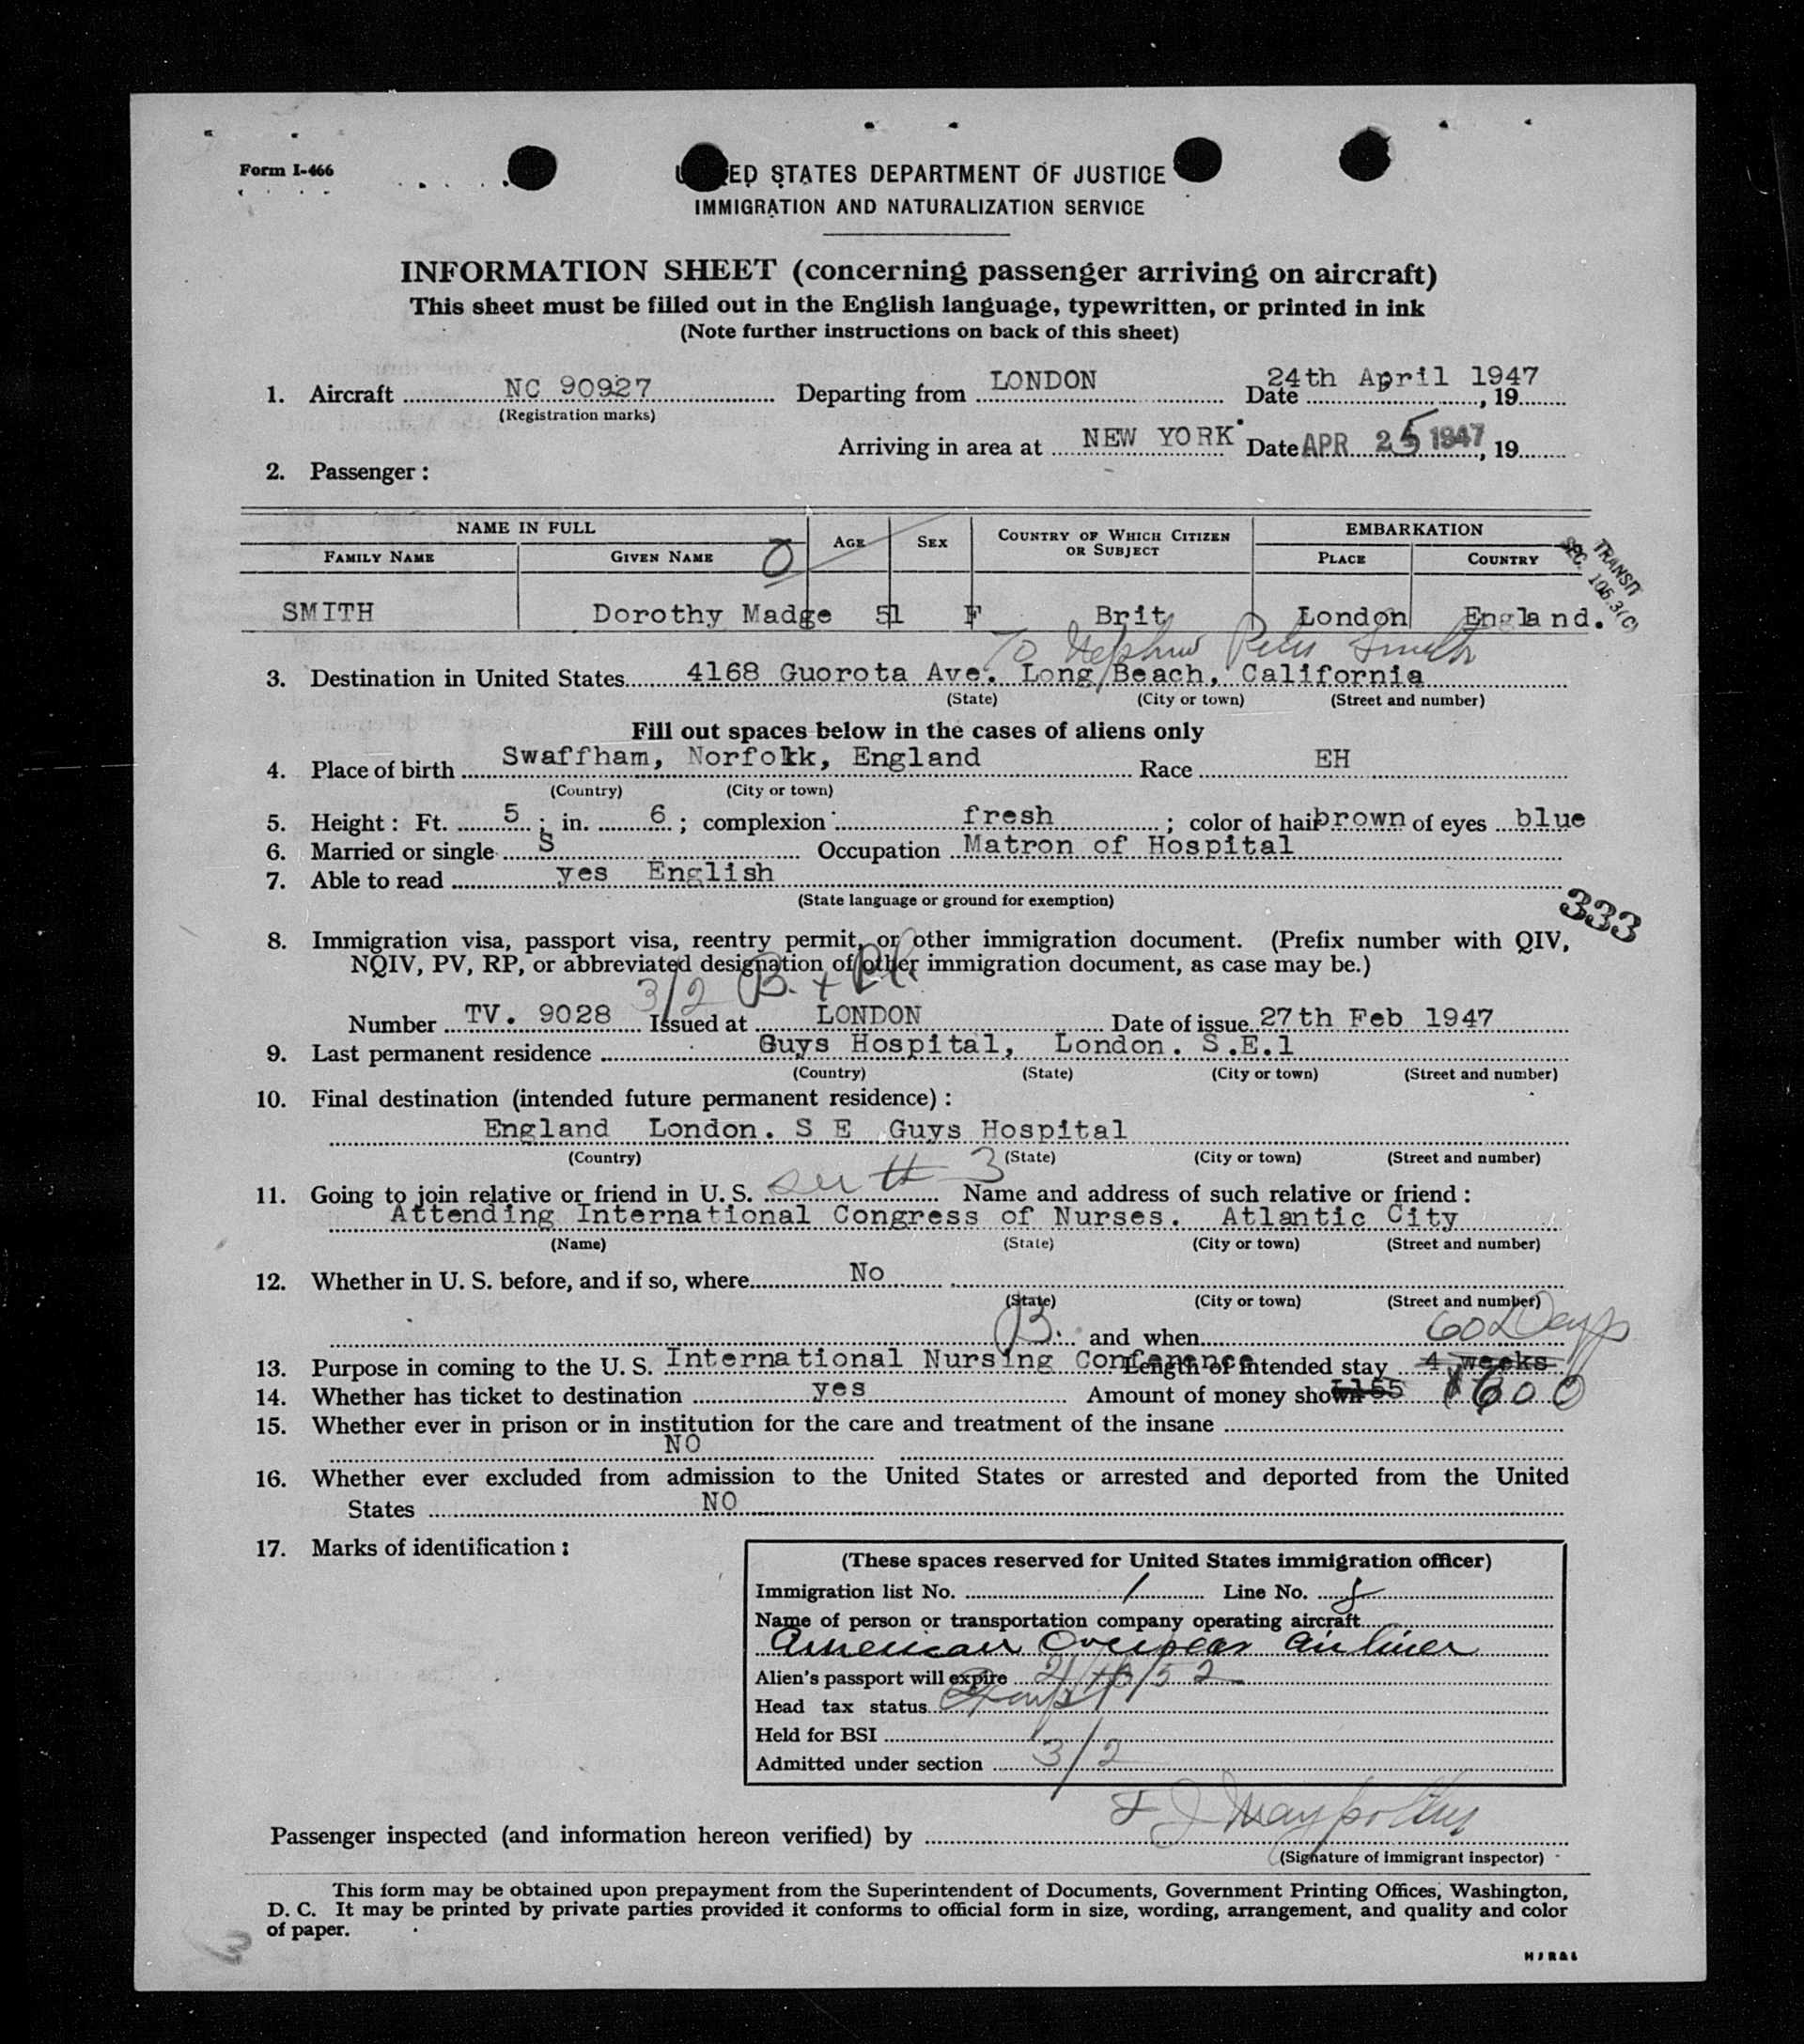 Form I-466
UNITED STATES DEPARTMENT OF JUSTICE
IMMIGRATION AND NATURALIZATION SERVICE
INFORMATION SHEET (concerning passenger arriving on aircraft)
This sheet must be filled out in the English language, typewritten, or printed in ink
(Note further instructions on back of this sheet)
1. Aircraft NC 90927 Departing from LONDON Date 24th April 1947, 19
(Registration marks)
Arriving in area at NEW YORK Date APR 25 1947, 19
2. Passenger:
NAME IN FULL AGE SEX COUNTRY OF WHICH CITIZEN OR SUBJECT EMBARKATION
FAMILY NAME GIVEN NAME PLACE COUNTRY
TRANSIT
SEC. 105.3(C)
SMITH Dorothy Madge 51 F Brit London England.
To Nephew Peter Smith
3. Destination in United States 4168 Guorota Ave. Long Beach, California
(State) (City or town) (Street and number)
Fill out spaces below in the cases of aliens only
4. Place of birth Swaffham, Norfolk, England Race EH
(Country) (City or town)
5. Height: Ft. 5; in. 6; complexion fresh; color of hair brown of eyes blue
6. Married or single S Occupation Matron of Hospital
7. Able to read yes English
(State language or ground for exemption)
333
8. Immigration visa, passport visa, reentry permit, or other immigration document. (Prefix number with QIV,
NQIV, PV, RP, or abbreviated designation of other immigration document, as case may be.)
3/2 B.
Number TV. 9028 Issued at LONDON Date of issue 27th Feb 1947
9. Last permanent residence Guys Hospital, London. S.E.1
(Country) (State) (City or town) (Street and number)
10. Final destination (intended future permanent residence):
England London. S E Guys Hospital
(Country) (State) (City or town) (Street and number)
11. Going to join relative or friend in U. S. see # 3 Name and address of such relative or friend:
Attending International Congress of Nurses. Atlantic City
(Name) (State) (City or town) (Street and number)
12. Whether in U. S. before, and if so, where No
(State) (City or town) (Street and number)
B. and when 60 Days
13. Purpose in coming to the U. S. International Nursing Conference Length of intended stay 4 weeks
14. Whether has ticket to destination yes Amount of money shown L155 $600
15. Whether ever in prison or in institution for the care and treatment of the insane
NO
16. Whether ever excluded from admission to the United States or arrested and deported from the United
States NO
17. Marks of identification:
(These spaces reserved for United States immigration officer)
Immigration list No. 1 Line No. 8
Name of person or transportation company operating aircraft
American Overseas Airlines
Alien's passport will expire
Head tax status
Held for BSI
Admitted under section 3/2
Passenger inspected (and information hereon verified) by
(Signature of immigrant inspector)
This form may be obtained upon prepayment from the Superintendent of Documents, Government Printing Offices, Washington,
D. C. It may be printed by private parties provided it conforms to official form in size, wording, arrangement, and quality and color
of paper.